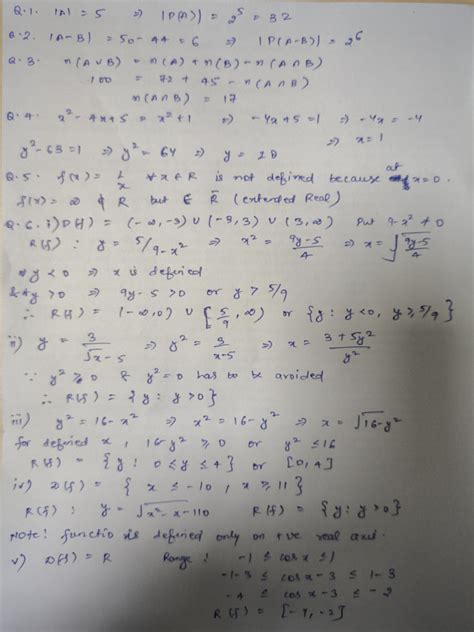 Q.1. |A| = 5 ⇒ |P(A)| = 2^5 = 32
Q.2. |A-B| = 50-44 = 6 ⇒ |P(A-B)| = 2^6
Q.3. n(A∪B) = n(A) + n(B) - n(A∩B)
100 = 72 + 45 - n(A∩B)
n(A∩B) = 17
Q.4. x²-4x+5 = x²+1 ⇒ -4x+5 = 1 ⇒ -4x = -4
⇒ x = 1
y²-63=1 ⇒ y² = 64 ⇒ y =
Q.5. f(x) = 1/x ∀ x∈R is not defined because at x=0.
f(x) = ∞ ∉ R but ∈ R̄ (extended Real)
Q.6. i) D(f) = (-∞,-3) ∪ (-3,3) ∪ (3,∞) Put 9-x² ≠ 0
R(f) : y = 5/9-x² ⇒ x² = 9y-5/4 ⇒ x = √9y-5/4
y < 0 ⇒ x is defined
& y > 0 ⇒ 9y-5 > 0 or y > 5/9
∴ R(f) = (-∞,0) ∪ [5/9, ∞) or {y: y<0, y ≥ 5/9}
ii) y = 3/√x-5 ⇒ y² = 9/x-5 ⇒ x = 3+5y²/y²
∵ y² ≥ 0 & y²=0 has to be avoided
∴ R(f) = {y: y>0}
iii) y² = 16-x² ⇒ x² = 16-y² ⇒ x = √16-y²
for defined x, 16-y² ≥ 0 or y² ≤ 16
R(f) = {y: 0 ≤ y ≤ 4} or [0,4]
iv) D(f) = {x ≤ -10, x ≥ 11}
R(f) : y = √x²-x-110 R(f) = {y: y>0}
Note: function is defined only on +ve real axis.
v) D(f) = R Range: -1 ≤ cosx ≤ 1
-1-3 ≤ cosx-3 ≤ 1-3
-4 ≤ cosx-3 ≤ -2
R(f) = [-4,-2]